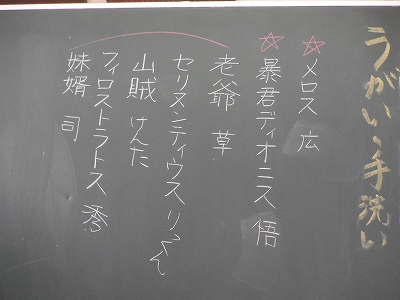 うがい・手洗い
☆メロス 広
☆暴君ディオニス 悟
老爺 草
セリヌンティウス りっくん
山賊 けんた
フィロストラトス 秀
妹婿 司